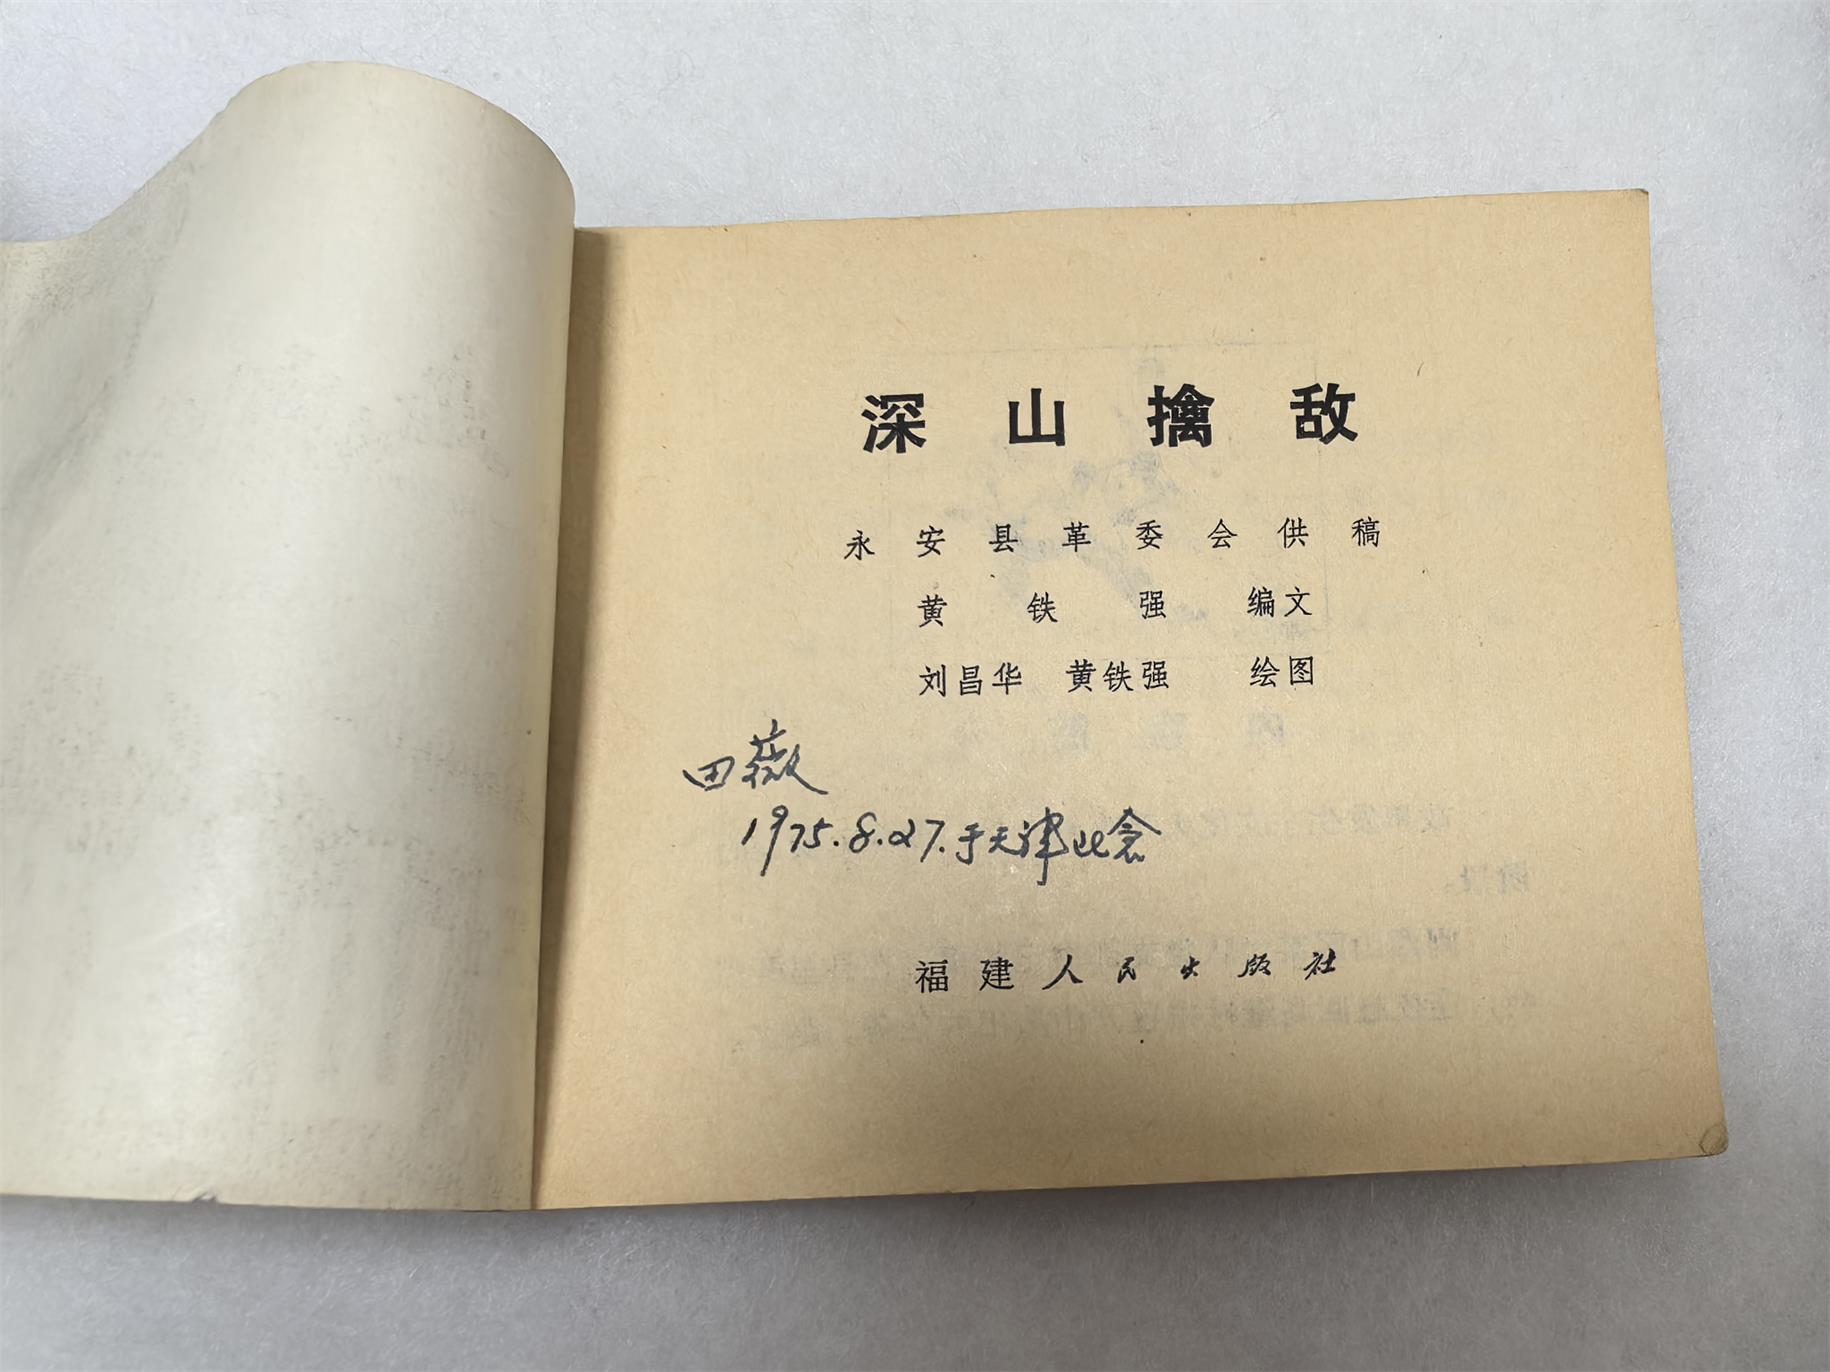 深山擒敌
永安县革委会供稿
黄铁强 编文
刘昌华 黄铁强 绘图
田薇
1975.8.27.于天津纪念
福建人民出版社